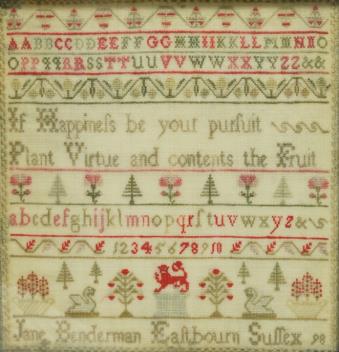 AABBCCDDEEFFGGHHIIKKLLMMNNOO
OPPQQRRSSTTUUVVWWXXYYZZ&&
If Happineſs be your purſuit
Plant Virtue and contents the Fruit
abcdefghijklmnopqrſtuvwxyz&
12345678910
Jane Benderman Eaſtbourn Suſſex 98